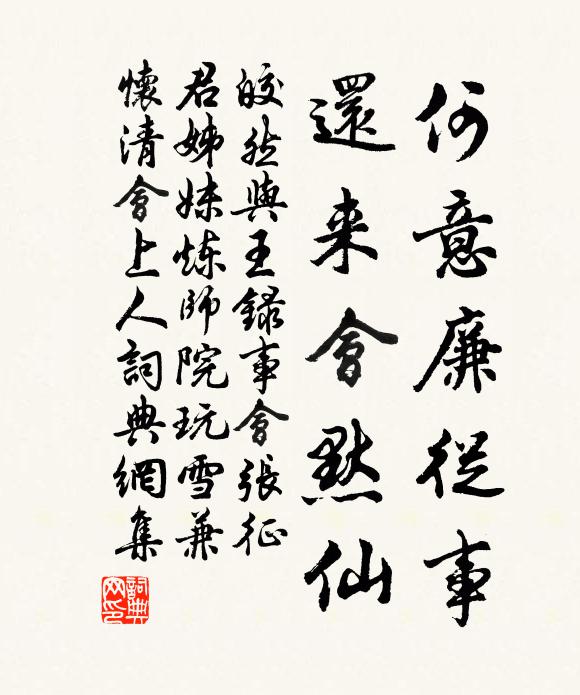 何意廉從事
還来會默仙
皎然與王録事會張征
君姊妹炼師院玩雪兼
懷清會上人詞典網集
詞典网印